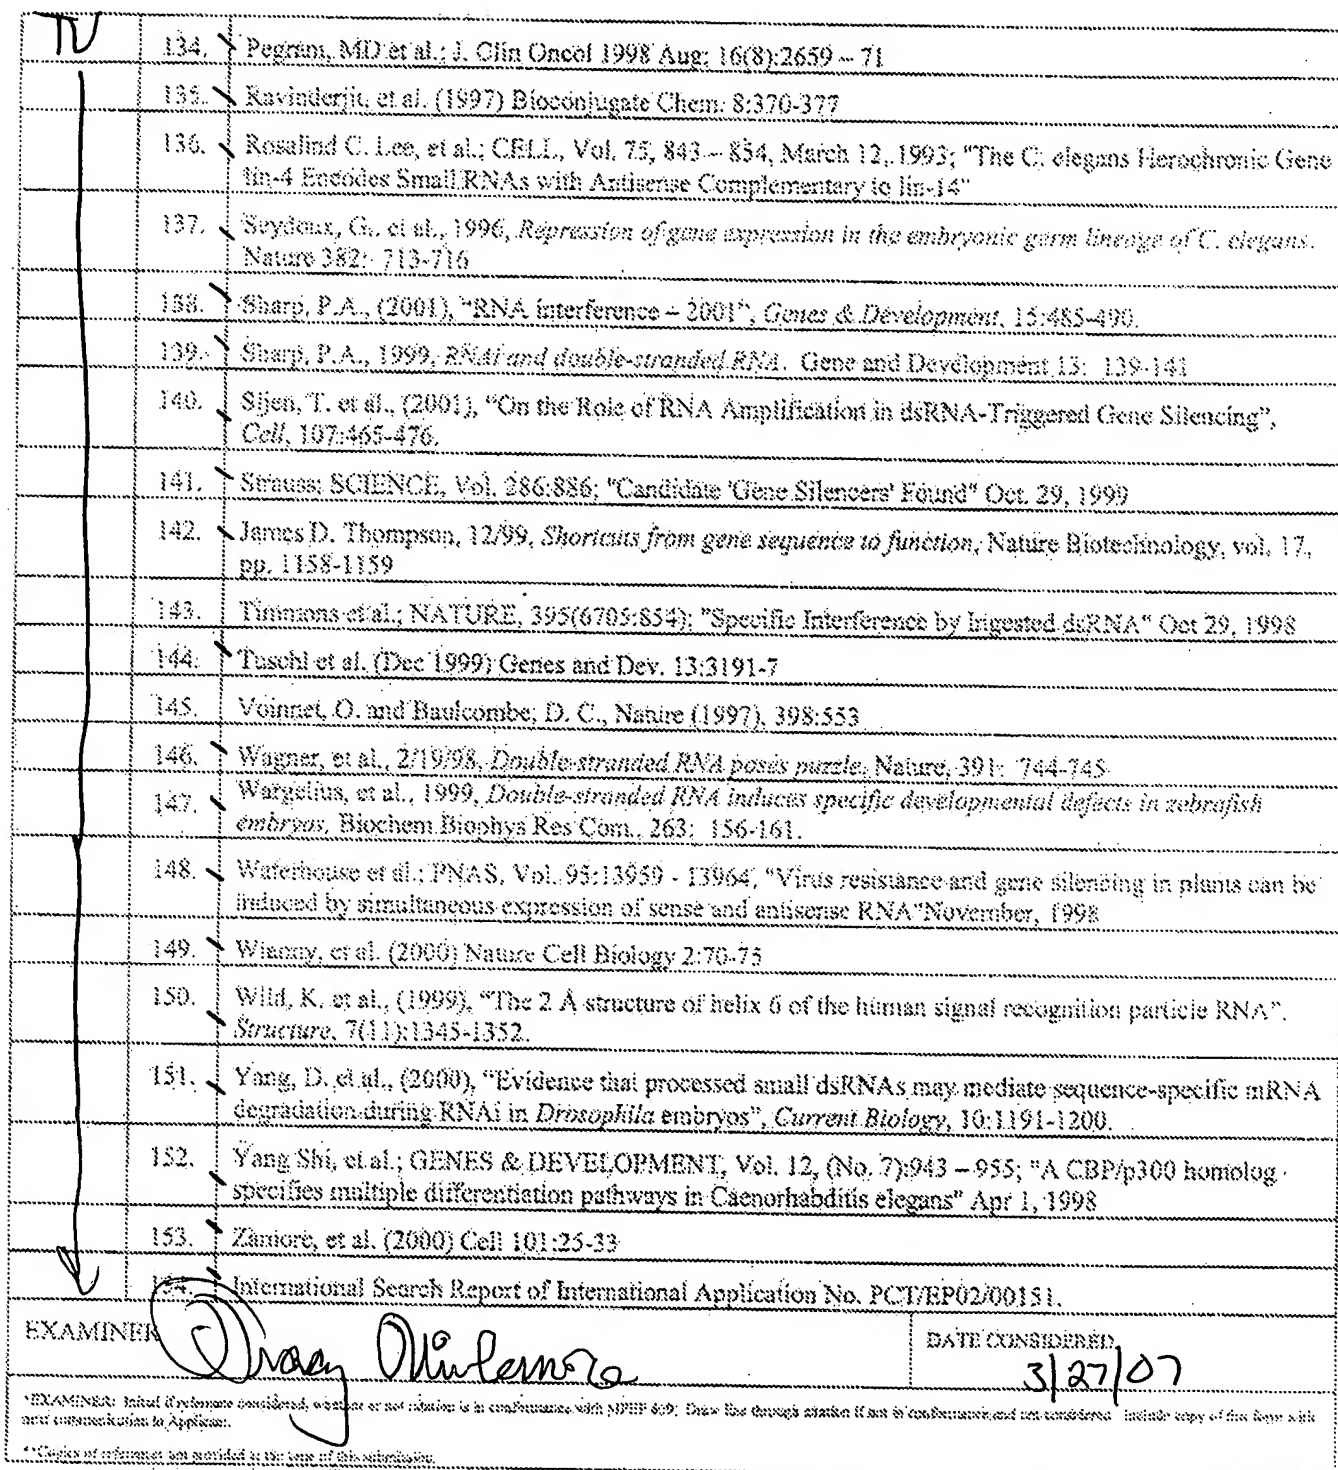 TV
134. Pegram, MD et al.; J. Clin Oncol 1998 Aug; 16(8):2659 – 71
135. Ravinderjit, et al. (1997) Bioconjugate Chem. 8:370-377
136. Rosalind C. Lee, et al.; CELL, Vol. 75, 843 – 854, March 12, 1993; "The C. elegans Herochronic Gene
lin-4 Encodes Small RNAs with Antisense Complementary to lin-14"
137. Seydoux, G., et al., 1996, Repression of gene expression in the embryonic germ lineage of C. elegans.
Nature 382: 713-716
138. Sharp, P.A., (2001), "RNA interference – 2001", Genes & Development, 15:485-490.
139. Sharp, P.A., 1999, RNAi and double-stranded RNA. Gene and Development 13: 139-141
140. Sijen, T. et al., (2001), "On the Role of RNA Amplification in dsRNA-Triggered Gene Silencing",
Cell, 107:465-476.
141. Strauss; SCIENCE, Vol. 286:886; "Candidate 'Gene Silencers' Found" Oct. 29, 1999
142. James D. Thompson, 12/99, Shortcuts from gene sequence to function, Nature Biotechnology, vol. 17,
pp. 1158-1159
143. Timmons et al.; NATURE, 395(6705:854); "Specific Interference by Ingested dsRNA" Oct 29, 1998
144. Tuschl et al. (Dec 1999) Genes and Dev. 13:3191-7
145. Voinnet, O. and Baulcombe; D. C., Nature (1997), 398:553
146. Wagner, et al., 2/19/98, Double-stranded RNA poses puzzle, Nature, 391: 744-745
147. Wargelius, et al., 1999, Double-stranded RNA induces specific developmental defects in zebrafish
embryos, Biochem Biophys Res Com., 263: 156-161.
148. Waterhouse et al.; PNAS, Vol. 95:13959 - 13964, "Virus resistance and gene silencing in plants can be
induced by simultaneous expression of sense and antisense RNA"November, 1998
149. Wianny, et al. (2000) Nature Cell Biology 2:70-75
150. Wild, K. et al., (1999), "The 2 Å structure of helix 6 of the human signal recognition particle RNA",
Structure, 7(11):1345-1352.
151. Yang, D. et al., (2000), "Evidence that processed small dsRNAs may mediate sequence-specific mRNA
degradation during RNAi in Drosophila embryos", Current Biology, 10:1191-1200.
152. Yang Shi, et al.; GENES & DEVELOPMENT, Vol. 12, (No. 7):943 – 955; "A CBP/p300 homolog
specifies multiple differentiation pathways in Caenorhabditis elegans" Apr 1, 1998
153. Zamore, et al. (2000) Cell 101:25-33
154. International Search Report of International Application No. PCT/EP02/00151.
EXAMINER
DATE CONSIDERED
3/27/07
*EXAMINER: Initial if reference considered, whether or not citation is in conformance with MPEP 609; Draw line through citation if not in conformance and not considered. Include copy of this form with
next communication to Applicant.
**Copies of references not provided at the time of this submission.